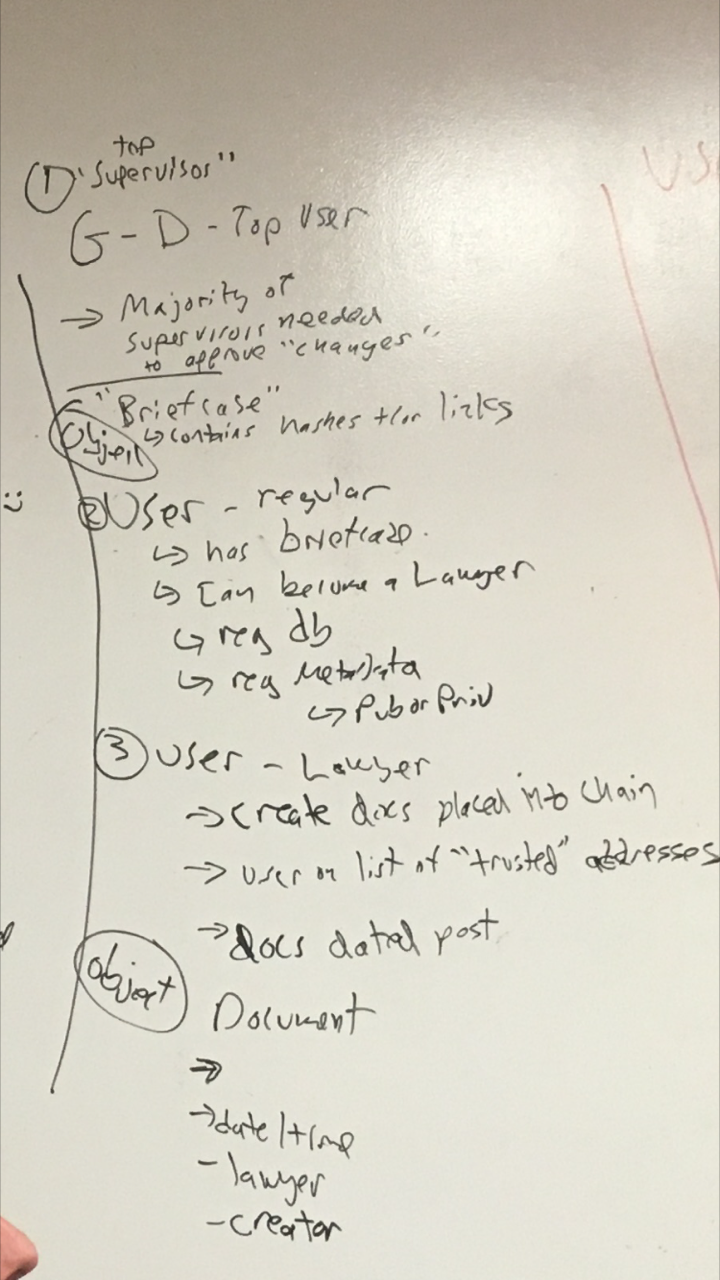 top
① "Supervisor"
G-D - Top User
US
→ Majority of
supervisors needed
to approve "changes"
"Briefcase"
Object
↳ contains hashes +/or links
② User - regular
:)
↳ has briefcase.
↳ Can become a Lawyer
↳ reg db
↳ reg Metadata
↳ Pub or Priv
③ User - Lawyer
→ create docs placed into chain
→ user on list of "trusted" addresses
→ docs post
object
Document
→
→ date/time
- lawyer
- creator